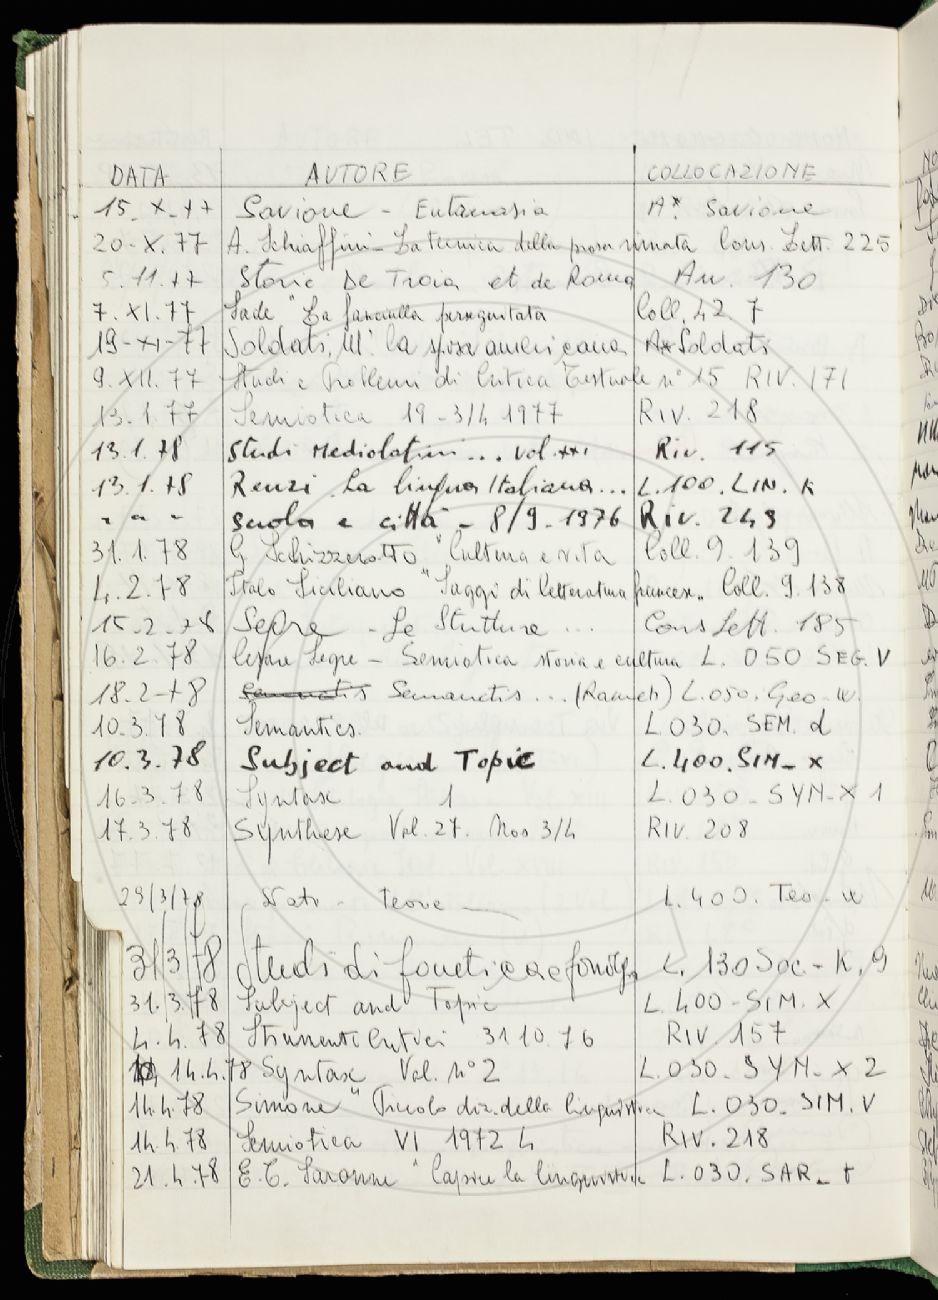 DATA AUTORE COLLOCAZIONE
15-X-77 Savione - Eutanasia A* Savione
20-X.77 A. Schiaffini - La tecnica della prosa rimata Cons. Lett. 225
5.11.77 Storie De Troia et de Roma Au. 130
7.XI.77 Sade "La fanciulla perseguitata Coll. 42.7
19-XI-77 Soldati, M. La sposa americana A* Soldati
9.XII.77 Studi e Problemi di Critica Testuale n° 15 RIV. 171
13.1.77 Semiotica 19-3/4 1977 RIV. 218
13.1.78 Studi Mediolatini ... vol. XXI Riv. 115
13.1.78 Renzi La lingua Italiana ... L.100.LIN.K
" " " scuola e città - 8/9-1976 Riv. 249
31.1.78 G. Schizzerotto "Cultura e vita Coll. 9.139
4.2.78 Italo Siciliano "Saggi di letteratura francese" Coll. 9.138
15-2-78 Segre - Le Strutture ... Cons Lett. 185
16.2.78 Cesare Segre - Semiotica storia e cultura L. 050 SEG.V
18.2-78 Semantics ... L. 050. Geo-w.
10.3.78 Semantics. L 030. SEM. d
10.3.78 Subject and Topic L.400.SIM-X
16-3.78 Syntax 1 L.030-SYN-X 1
17.3.78 Synthese Vol.27. Nos 3/4 RIV. 208
29/3/78 teorie L.400. Teo-w
31/3/78 Studi di fonetica e fonolog. L. 130 Soc-K.9
31.3.78 Subject and Topic L.400-SIM. X
4.4.78 Strumenti Critici 31 10.76 RIV. 157
14.4.78 Syntax Vol. n°2 L.030-SYN-X 2
14.4.78 Simone "Piccolo diz. della linguistica L. 030. SIM. V
14.4.78 Semiotica VI 1972 4 RIV. 218
21.4.78 E.T. Saronne "Capire la linguistica L.030.SAR-t